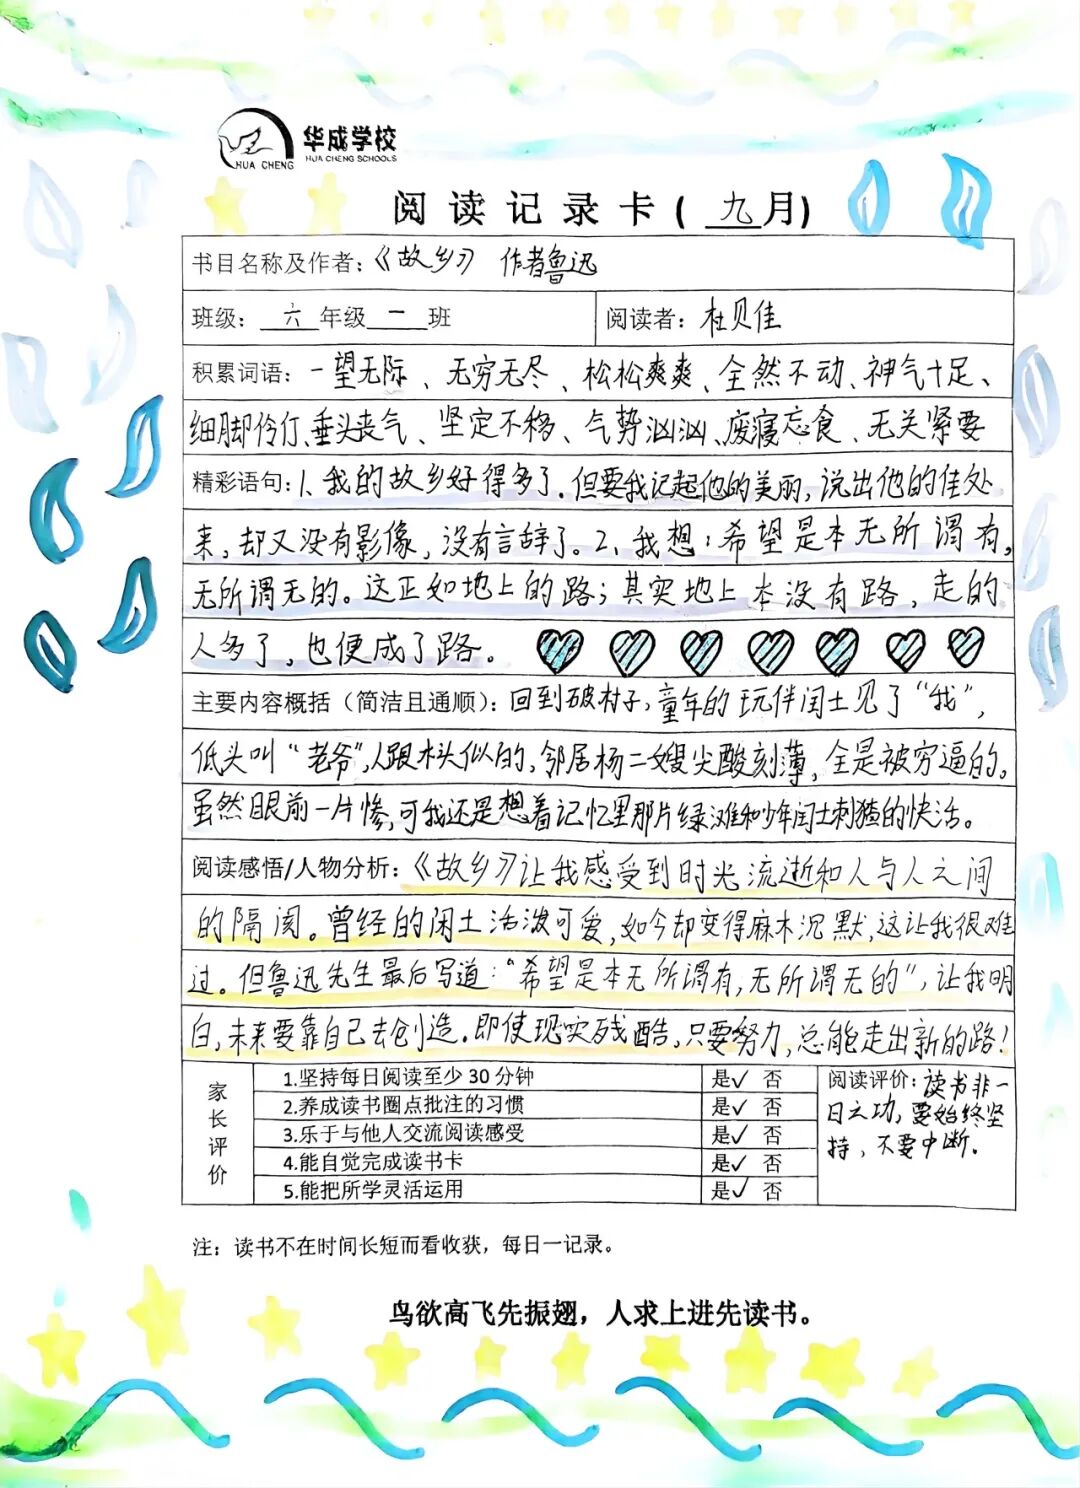 华成学校
HUA CHENG SCHOOLS
HUA CHENG
阅读记录卡(九月)
书目名称及作者：《故乡》 作者鲁迅
班级：六年级一班 阅读者：杜贝佳
积累词语：一望无际、无穷无尽、松松爽爽、全然不动、神气十足、
细脚伶仃、垂头丧气、坚定不移、气势汹汹、废寝忘食、无关紧要
精彩语句：1、我的故乡好得多了。但要我记起他的美丽，说出他的佳处
来，却又没有影像，没有言辞了。2、我想：希望是本无所谓有，
无所谓无的。这正如地上的路；其实地上本没有路，走的
人多了，也便成了路。
主要内容概括（简洁且通顺）：回到破村子，童年的玩伴闰土见了“我”，
低头叫“老爷”，人跟木头似的，邻居杨二嫂尖酸刻薄，全是被穷逼的。
虽然眼前一片惨，可我还是想着记忆里那片绿滩和少年闰土刺猹的快活。
阅读感悟/人物分析：《故乡》让我感受到时光流逝和人与人之间
的隔阂。曾经的闰土活泼可爱，如今却变得麻木沉默，这让我很难
过。但鲁迅先生最后写道：“希望是本无所谓有，无所谓无的”，让我明
白，未来要靠自己去创造。即使现实残酷，只要努力，总能走出新的路！
家长评价
1.坚持每日阅读至少30分钟 是✓ 否
2.养成读书圈点批注的习惯 是✓ 否
3.乐于与他人交流阅读感受 是✓ 否
4.能自觉完成读书卡 是✓ 否
5.能把所学灵活运用 是✓ 否
阅读评价：读书非一
日之功，要始终坚
持，不要中断。
注：读书不在时间长短而看收获，每日一记录。
鸟欲高飞先振翅，人求上进先读书。